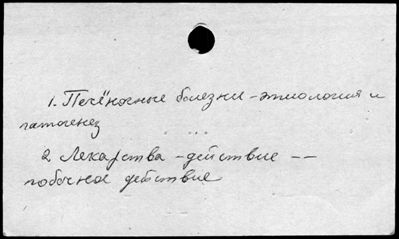 1. Печёночные болезни - этиология и
патогенез
" " "
2. Лекарства - действие --
побочное действие